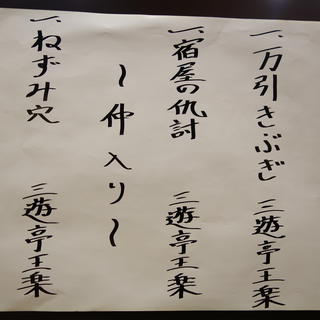 一、万引きぶぎ 三遊亭王楽
一、宿屋の仇討 三遊亭王楽
〜仲入り〜
一、ねずみ穴 三遊亭王楽